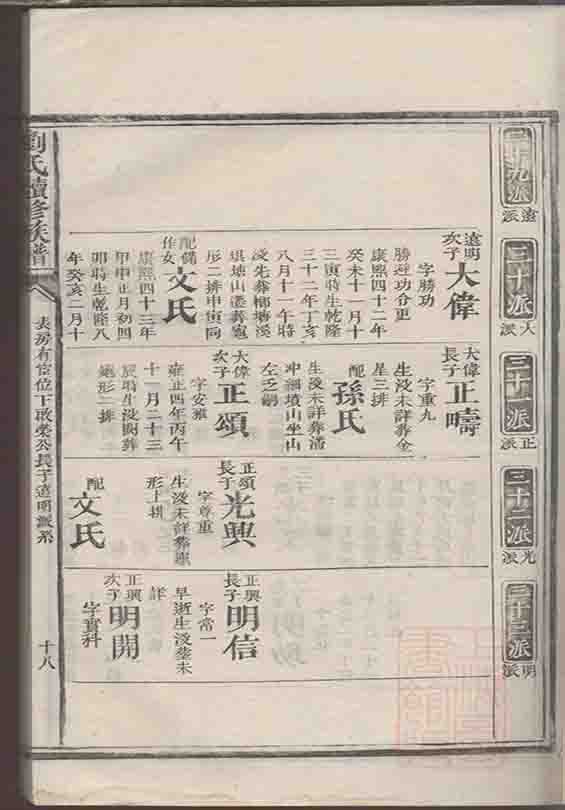 二十九派
遠派
三十派
大派
三十一派
正派
三十二派
光派
三十三派
明派
遠明次子
大偉
字勝功
勝迎功合更
康熙四十二年
癸未十一月十
三寅時生乾隆
三十二年丁亥
八月十一年時
沒先葬
形二排申寅同
配儲作女
文氏
康熙四十三年
甲申正月初四
卯時生乾隆八
年癸亥二月十
大偉長子
正疇
字重九
生沒未詳葬金
星三排
配
孫氏
生沒未詳葬潘
沖細墳山坐山
左乏嗣
大偉次子
正頌
字安雍
雍正四年丙午
十一月二十三
辰時生沒闕葬
龜形二排
正頌長子
光興
字尊重
生沒未詳葬
形上排
配
文氏
正興長子
明信
字當一
早逝生沒塋未
詳
正興次子
明開
字寶科
劉氏續修族譜
表房有宦位下啟榮公長子遠明派系
十八